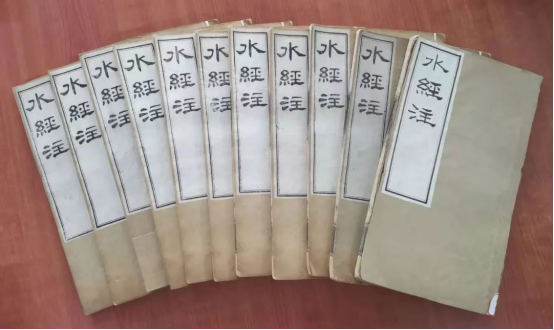 水經注
水經注
水經注
水經注
水經注
水經注
水經注
水經注
水經注
水經注
水經注